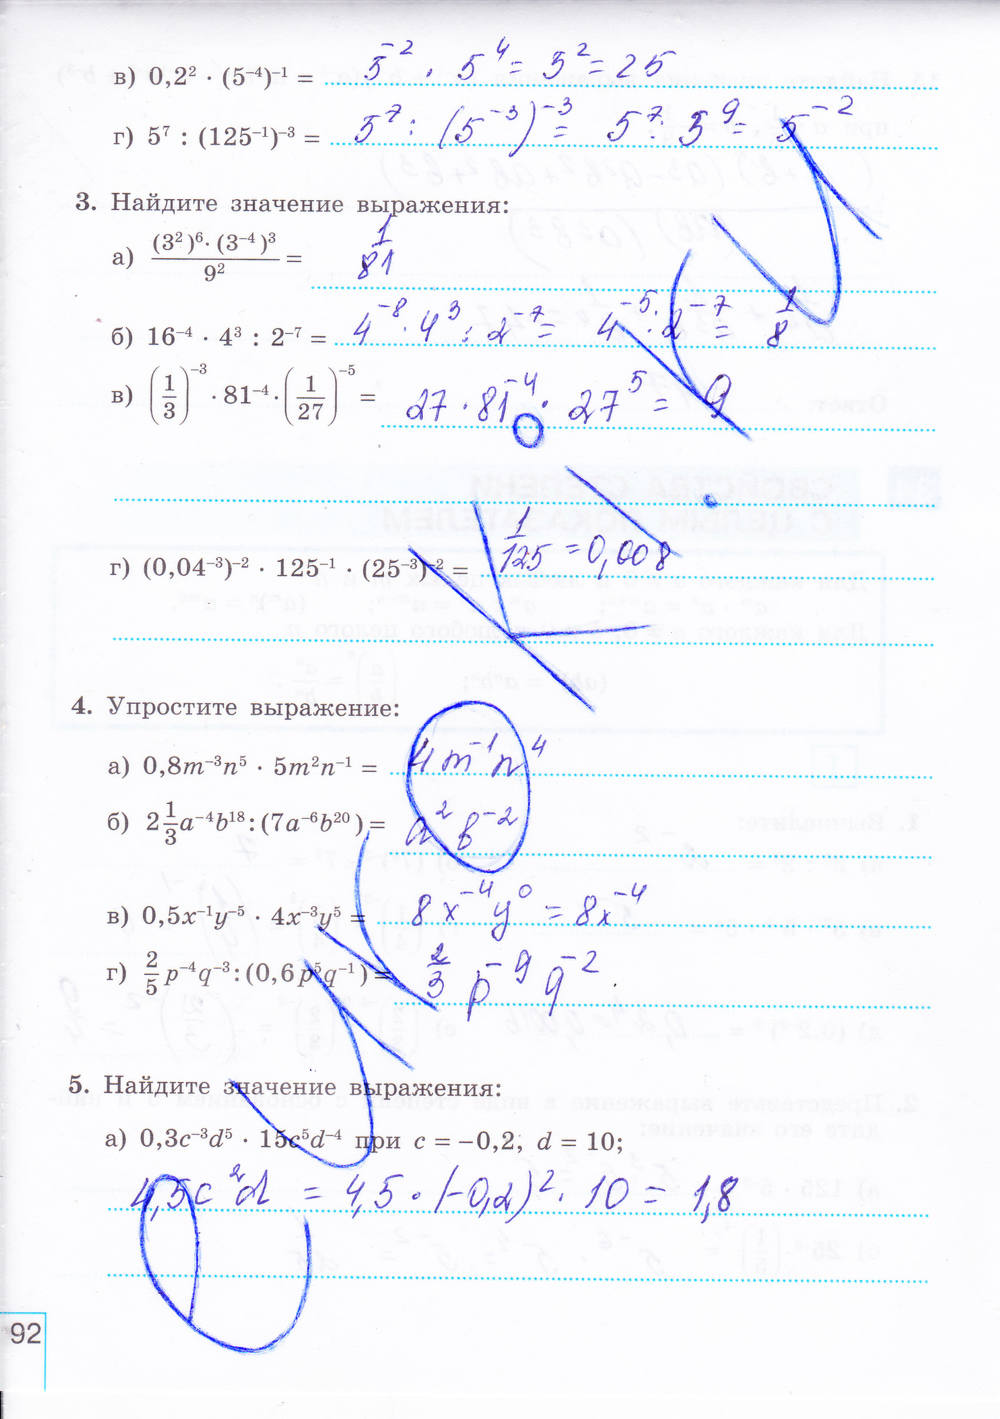 в) 0,2² · (5⁻⁴)⁻¹ = 5⁻² · 5⁴ = 5² = 25
г) 5⁷ : (125⁻¹)⁻³ = 5⁷ : (5⁻³)⁻³ = 5⁷ : 5⁹ = 5⁻²
3. Найдите значение выражения:
а) (3²)⁶ · (3⁻⁴)³ / 9² = 1/81
б) 16⁻⁴ · 4³ : 2⁻⁷ = 4⁻⁸ · 4³ : 2⁻⁷ = 4⁻⁵ : 2⁻⁷ = 1/8
в) (1/3)⁻³ · 81⁻⁴ · (1/27)⁻⁵ = 27 · 81⁻⁴ · 27⁵ = 9
г) (0,04⁻³)⁻² · 125⁻¹ · (25⁻³)⁻² = 1/125 = 0,008
4. Упростите выражение:
а) 0,8m⁻³n⁵ · 5m²n⁻¹ = 4m⁻¹n⁴
б) 2 1/3 a⁻⁴b¹⁸ : (7a⁻⁶b²⁰) = a²b⁻²
в) 0,5x⁻¹y⁻⁵ · 4x⁻³y⁵ = 8x⁻⁴y⁰ = 8x⁻⁴
г) 2/5 p⁻⁴q⁻³ : (0,6p⁵q⁻¹) = 2/3 p⁻⁹q⁻²
5. Найдите значение выражения:
а) 0,3c⁻³d⁵ · 15c⁵d⁻⁴ при c = −0,2, d = 10;
4,5c²d = 4,5 · (−0,2)² · 10 = 1,8
92